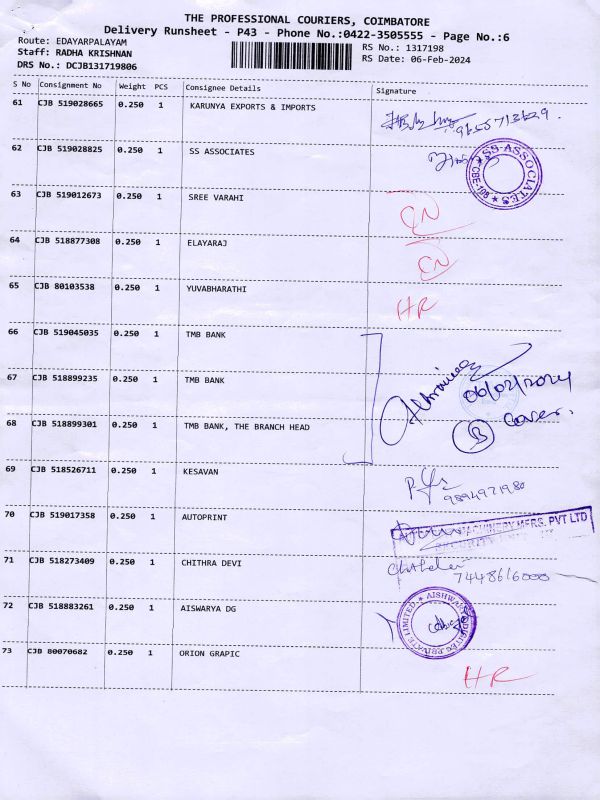 THE PROFESSIONAL COURIERS, COIMBATORE
Delivery Runsheet - P43 - Phone No.:0422-3505555 - Page No.:6
Route: EDAYARPALAYAM
RS No.: 1317198
Staff: RADHA KRISHNAN
RS Date: 06-Feb-2024
DRS No.: DCJB131719806
S No Consignment No Weight PCS Consignee Details Signature
61 CJB 519028665 0.250 1 KARUNYA EXPORTS & IMPORTS
62 CJB 519028825 0.250 1 SS ASSOCIATES
SS-ASSOCIATES
63 CJB 519012673 0.250 1 SREE VARAHI
CN
64 CJB 518877308 0.250 1 ELAYARAJ
CN
65 CJB 80103538 0.250 1 YUVABHARATHI
HR
66 CJB 519045035 0.250 1 TMB BANK
67 CJB 518899235 0.250 1 TMB BANK
06/02/2024
68 CJB 518899301 0.250 1 TMB BANK, THE BRANCH HEAD
3 cover.
69 CJB 518526711 0.250 1 KESAVAN
9894971980
70 CJB 519017358 0.250 1 AUTOPRINT
MACHINERY MFRS. PVT LTD
71 CJB 518273409 0.250 1 CHITHRA DEVI
7448616000
72 CJB 518883261 0.250 1 AISWARYA DG
PRIVATE LIMITED
73 CJB 80070682 0.250 1 ORION GRAPIC
HR